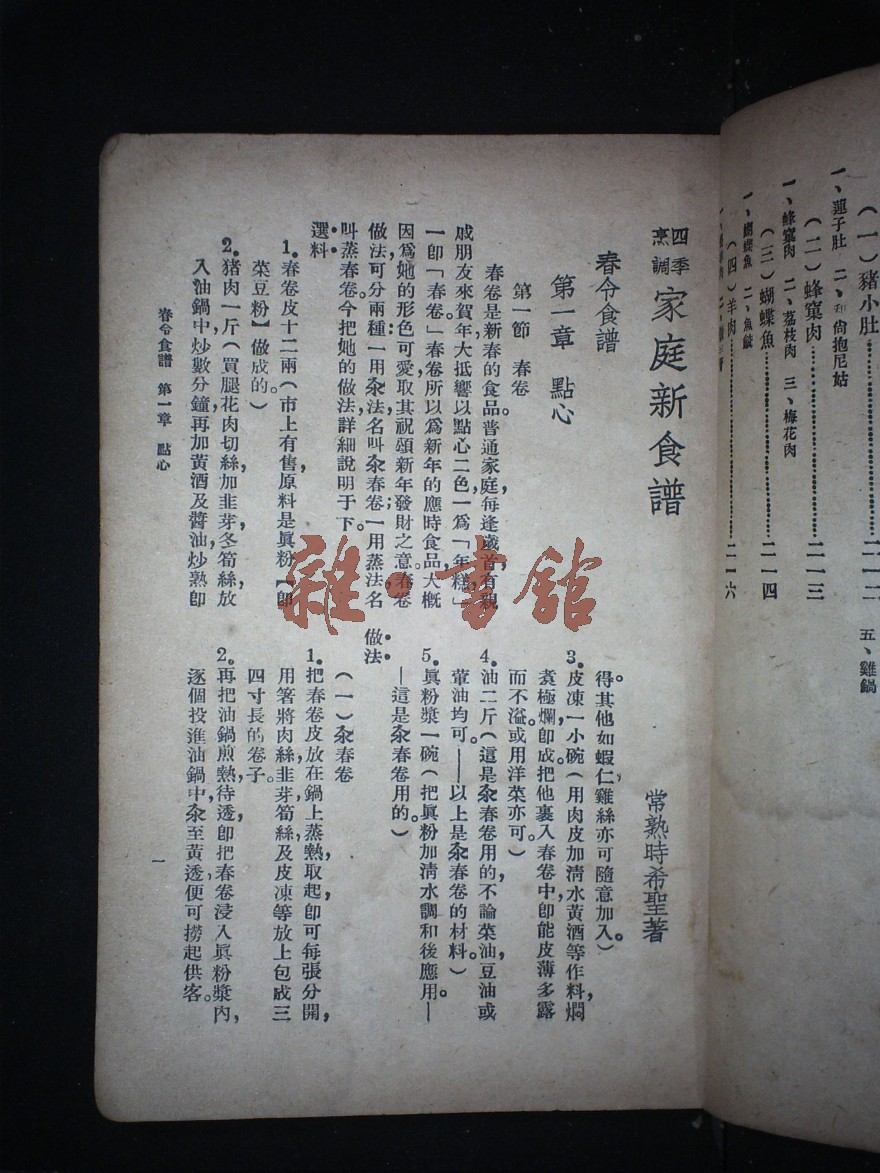 (一)豬小肚………二一二
一、蓮子肚 二、和尚抱尼姑
(二)蜂窠肉………二一三
一、蜂窠肉 二、荔枝肉 三、梅花肉
(三)蝴蝶魚………二一四
一、蝴蝶魚 二、魚鬆
(四)羊肉………二一六
五、雞鍋
四季烹調 家庭新食譜
常熟時希聖著
春令食譜
第一章 點心
第一節 春卷
春卷是新春的食品。普通家庭每逢歲首,有親
戚朋友來賀年,大抵饗以點心二色,一為「年糕」
一即「春卷。」春卷所以為新年的應時食品,大概
因為她的形色可愛,取其祝頌新年發財之意。春卷
做法,可分兩種:一用汆法,名叫汆春卷;一用蒸法,名
叫蒸春卷。今把她的做法,詳細說明于下。
選料
1。春卷皮十二兩(市上有售,原料是眞粉【卽
菜豆粉】做成的。)
2。猪肉一斤(買腿花肉切絲,加韭芽,冬筍絲,放
入油鍋中,炒數分鐘,再加黃酒及醬油,炒熟卽
得。其他如蝦仁,雞絲,亦可隨意加入。)
3。皮凍一小碗(用肉皮加淸水黃酒等作料,燜
煮極爛,卽成。把他裹入春卷中,卽能皮薄多露
而不溢。或用洋菜亦可。)
4。油二斤(這是汆春卷用的,不論菜油,豆油,或
葷油均可。——以上是汆春卷的材料。)
5。眞粉漿一碗(把眞粉加淸水調和後應用。—
—這是汆春卷用的。)
做法
(一)汆春卷
1。把春卷皮放在鍋上蒸熱,取起,卽可每張分開,
用箸將肉絲,韭芽,筍絲,及皮凍等放上,包成三
四寸長的卷子。
2。再把油鍋煎熱,待透,卽把春卷浸入眞粉漿內,
逐個投進油鍋中,汆至黃透,便可撈起供客。
春令食譜 第一章 點心
一
雜·書館